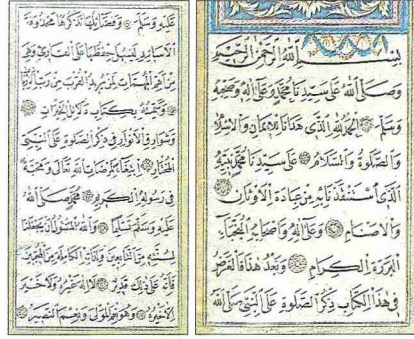 بسم الله الرحمن الرحيم
وصلى الله على سيدنا محمد وعلى آله وصحبه
وسلم الحمد لله الذي هدانا للإيمان والإسلام
والصلوة والسلام على سيدنا محمد نبيه
الذي استنقذنا به من عبادة الأوثان
والأصنام وعلى آله وأصحابه النجباء
البررة الكرام وبعد هذا فالغرض
في هذا الكتاب ذكر الصلوة على النبي صلى الله
عليه وسلم وفضائلها نذكرها محذوفة
الأسانيد ليسهل حفظها على القارئ وهي
من أهم المهمات لمن يريد القرب من رب الأرباب
وسميته بكتاب دلائل الخيرات
وشوارق الأنوار في ذكر الصلوة على النبي
المختار ابتغاء لمرضات الله تعالى ومحبة
في رسوله الكريم محمد صلى الله
عليه وسلم تسليما والله المسؤل أن يجعلنا
لسنته من التابعين ولذاته الكاملة من المحبين
فإنه على ذلك قدير لا إله غيره ولا خير
إلا خيره وهو نعم المولى ونعم النصير